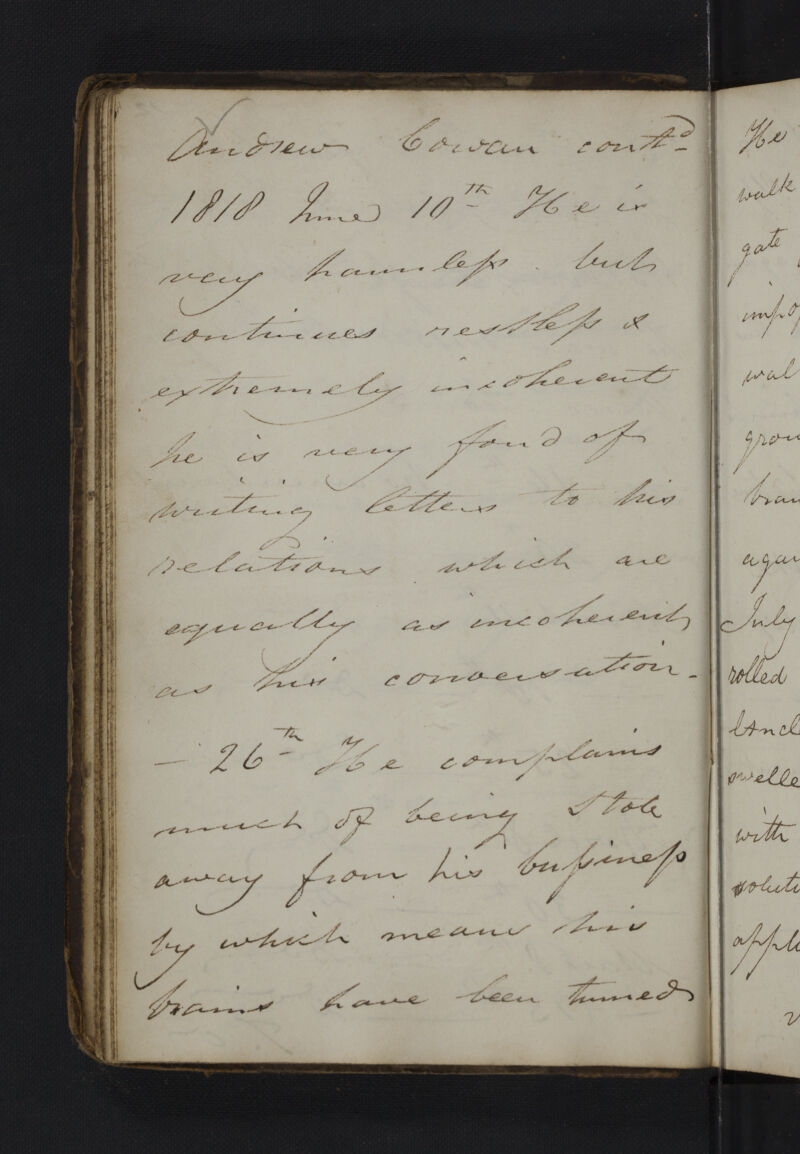 Andrew Cowan cont.d
1818 June 10th He is
very harmless but
continues restless &
extremely incoherent
he is very fond of
writing letters to his
relations which are
equally as incoherent
as his conversation -
- 26th He complains
much of being stole
away from his bussiness
by which means his
brains have been turned
He
walk
gate
impo
wal
grou
bran
again
July
rolled
swelle
with
soluti
appli